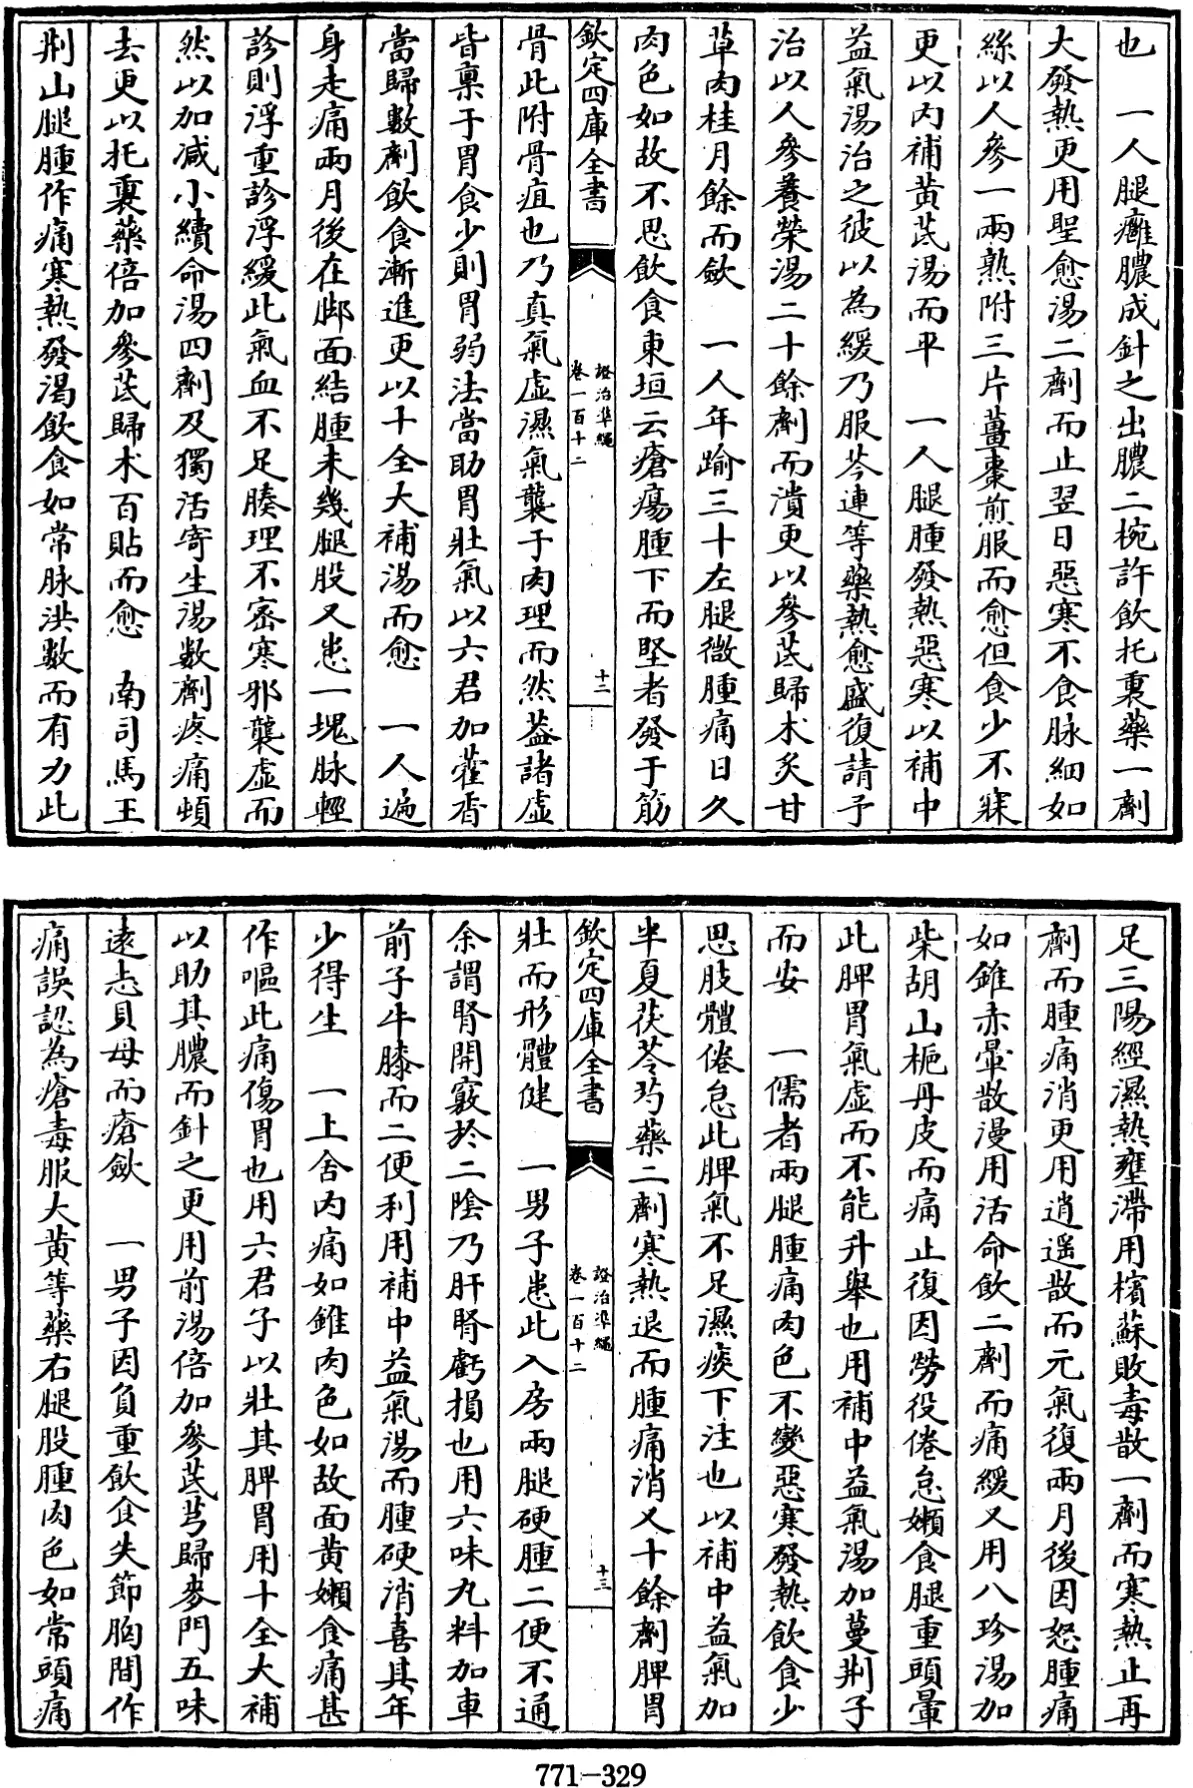 也　一人腿癰膿成針之出膿二椀許飲托裏藥一劑
大發熱更用聖愈湯二劑而止翌日惡寒不食脉細如
絲以人參一兩熟附三片薑棗煎服而愈但食少不寐
更以内補黄芪湯而平　一人腿腫發熱惡寒以補中
益氣湯治之彼以為緩乃服芩連等藥熱愈盛復請予
治以人參養榮湯二十餘劑而潰更以參芪歸术炙甘
草肉桂月餘而斂　一人年踰三十左腿微腫痛日久
肉色如故不思飲食東垣云瘡瘍腫下而堅者發于筋
欽定四庫全書
證治準繩
卷一百十二
十二
骨此附骨疽也乃真氣虛濕氣襲于肉理而然葢諸虛
皆禀于胃食少則胃弱法當助胃壯氣以六君加藿香
當歸數劑飲食漸進更以十全大補湯而愈　一人遍
身走痛兩月後在脚面結腫未幾腿股又患一塊脉輕
診則浮重診浮緩此氣血不足腠理不密寒邪襲虛而
然以加减小續命湯四劑及獨活寄生湯數劑疼痛頓
去更以托裏藥倍加參芪歸术百貼而愈　南司馬王
荆山腿腫作痛寒熱發渴飲食如常脉洪數而有力此
足三陽經濕熱壅滯用檳蘇敗毒散一劑而寒熱止再
劑而腫痛消更用逍遥散而元氣復兩月後因怒腫痛
如錐赤暈散漫用活命飲二劑而痛緩又用八珍湯加
柴胡山梔丹皮而痛止復因勞役倦怠嬾食腿重頭暈
此脾胃氣虛而不能升舉也用補中益氣湯加蔓荆子
而安　一儒者兩腿腫痛肉色不變惡寒發熱飲食少
思肢體倦怠此脾氣不足濕痰下注也以補中益氣加
半夏茯苓芍藥二劑寒熱退而腫痛消又十餘劑脾胃
欽定四庫全書
證治準繩
卷一百十二
十三
壯而形體健　一男子患此入房兩腿硬腫二便不通
余謂腎開竅於二陰乃肝腎虧損也用六味丸料加車
前子牛膝而二便利用補中益氣湯而腫硬消喜其年
少得生　一上舍内痛如錐肉色如故面黄嬾食痛甚
作嘔此痛傷胃也用六君子以壯其脾胃用十全大補
以助其膿而針之更用前湯倍加參芪芎歸麥門五味
遠志貝母而瘡斂　一男子因負重飲食失節胸間作
痛誤認為瘡毒服大黄等藥右腿股腫肉色如常頭痛
771-329